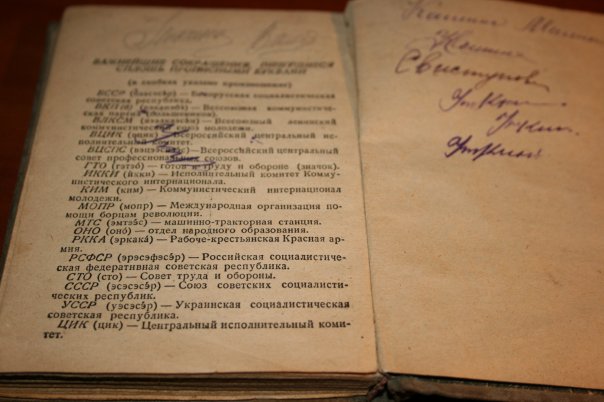 ВАЖНЕЙШИЕ СОКРАЩЕНИЯ, ПИШУЩИЕСЯ
СПЛОШЬ ПРОПИСНЫМИ БУКВАМИ
(в скобках указано произношение)
БССР (бээсэсэ́р) — Белорусская социалистическая
советская республика.
ВКП(б) — Всесоюзная коммунистиче-
ская партия (большевиков).
ВЛКСМ — Всесоюзный ленинский
коммунистический союз молодежи.
ВЦИК (вцик) — Всероссийский центральный ис-
полнительный комитет.
ВЦСПС — Всероссийский центральный
совет профессиональных союзов.
ГТО (гэтэо́) — готов к труду и обороне (значок).
ИККИ (и́кки) — Исполнительный комитет Комму-
нистического интернационала.
КИМ (ким) — Коммунистический интернационал
молодежи.
МОПР (мопр) — Международная организация по-
мощи борцам революции.
МТС (эмтээ́с) — машинно-тракторная станция.
ОНО (оно́) — отдел народного образования.
РККА (эркака́) — Рабоче-крестьянская Красная ар-
мия.
РСФСР (эрэсэфэсэ́р) — Российская социалистиче-
ская федеративная советская республика.
СТО (сто) — Совет труда и обороны.
СССР (эсэсэсэ́р) — Союз советских социалистиче-
ских республик.
УССР (уэсэсэ́р) — Украинская социалистическая
советская республика.
ЦИК (цик) — Центральный исполнительный коми-
тет.
Свистунов